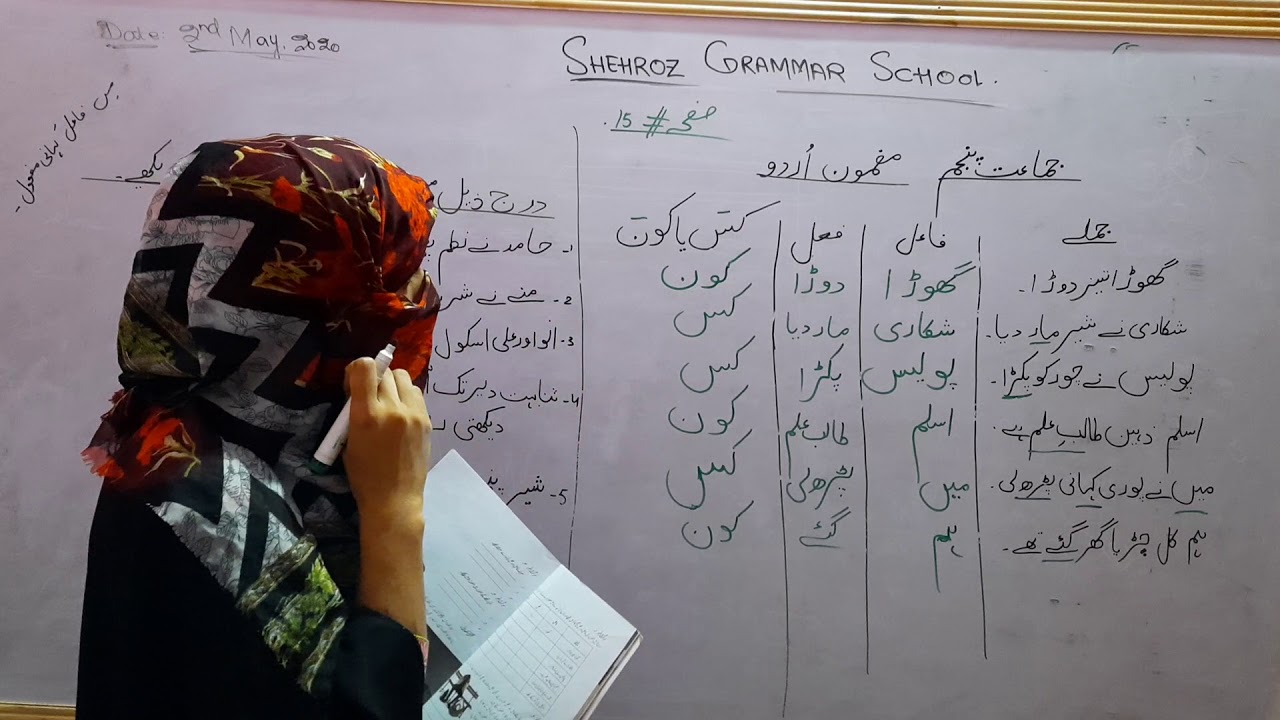 Date: 2nd May, 2020
SHEHROZ GRAMMAR SCHOOL.
صفحہ # 15.
جماعت پنجم مضمون اُردو
جملے فاعل فعل کس یا کون
گھوڑا تیز دوڑا۔ گھوڑا دوڑا کون
شکاری نے شیر مار دیا۔ شکاری مار دیا کس
پولیس نے چور کو پکڑا۔ پولیس پکڑا کس
اسلم ذہین طالبِ علم ہے۔ اسلم طالب علم کون
میں نے پوری کہانی پڑھ لی۔ میں پڑھ لی کس
ہم کل چڑیا گھر گئے تھے۔ ہم گئے کون
درج ذیل
1۔ حامد نے نظم
2۔ منے نے
3۔ انو اور علی اسکول
4۔ شباہت دیر تک
دیکھتی
5۔ شیر